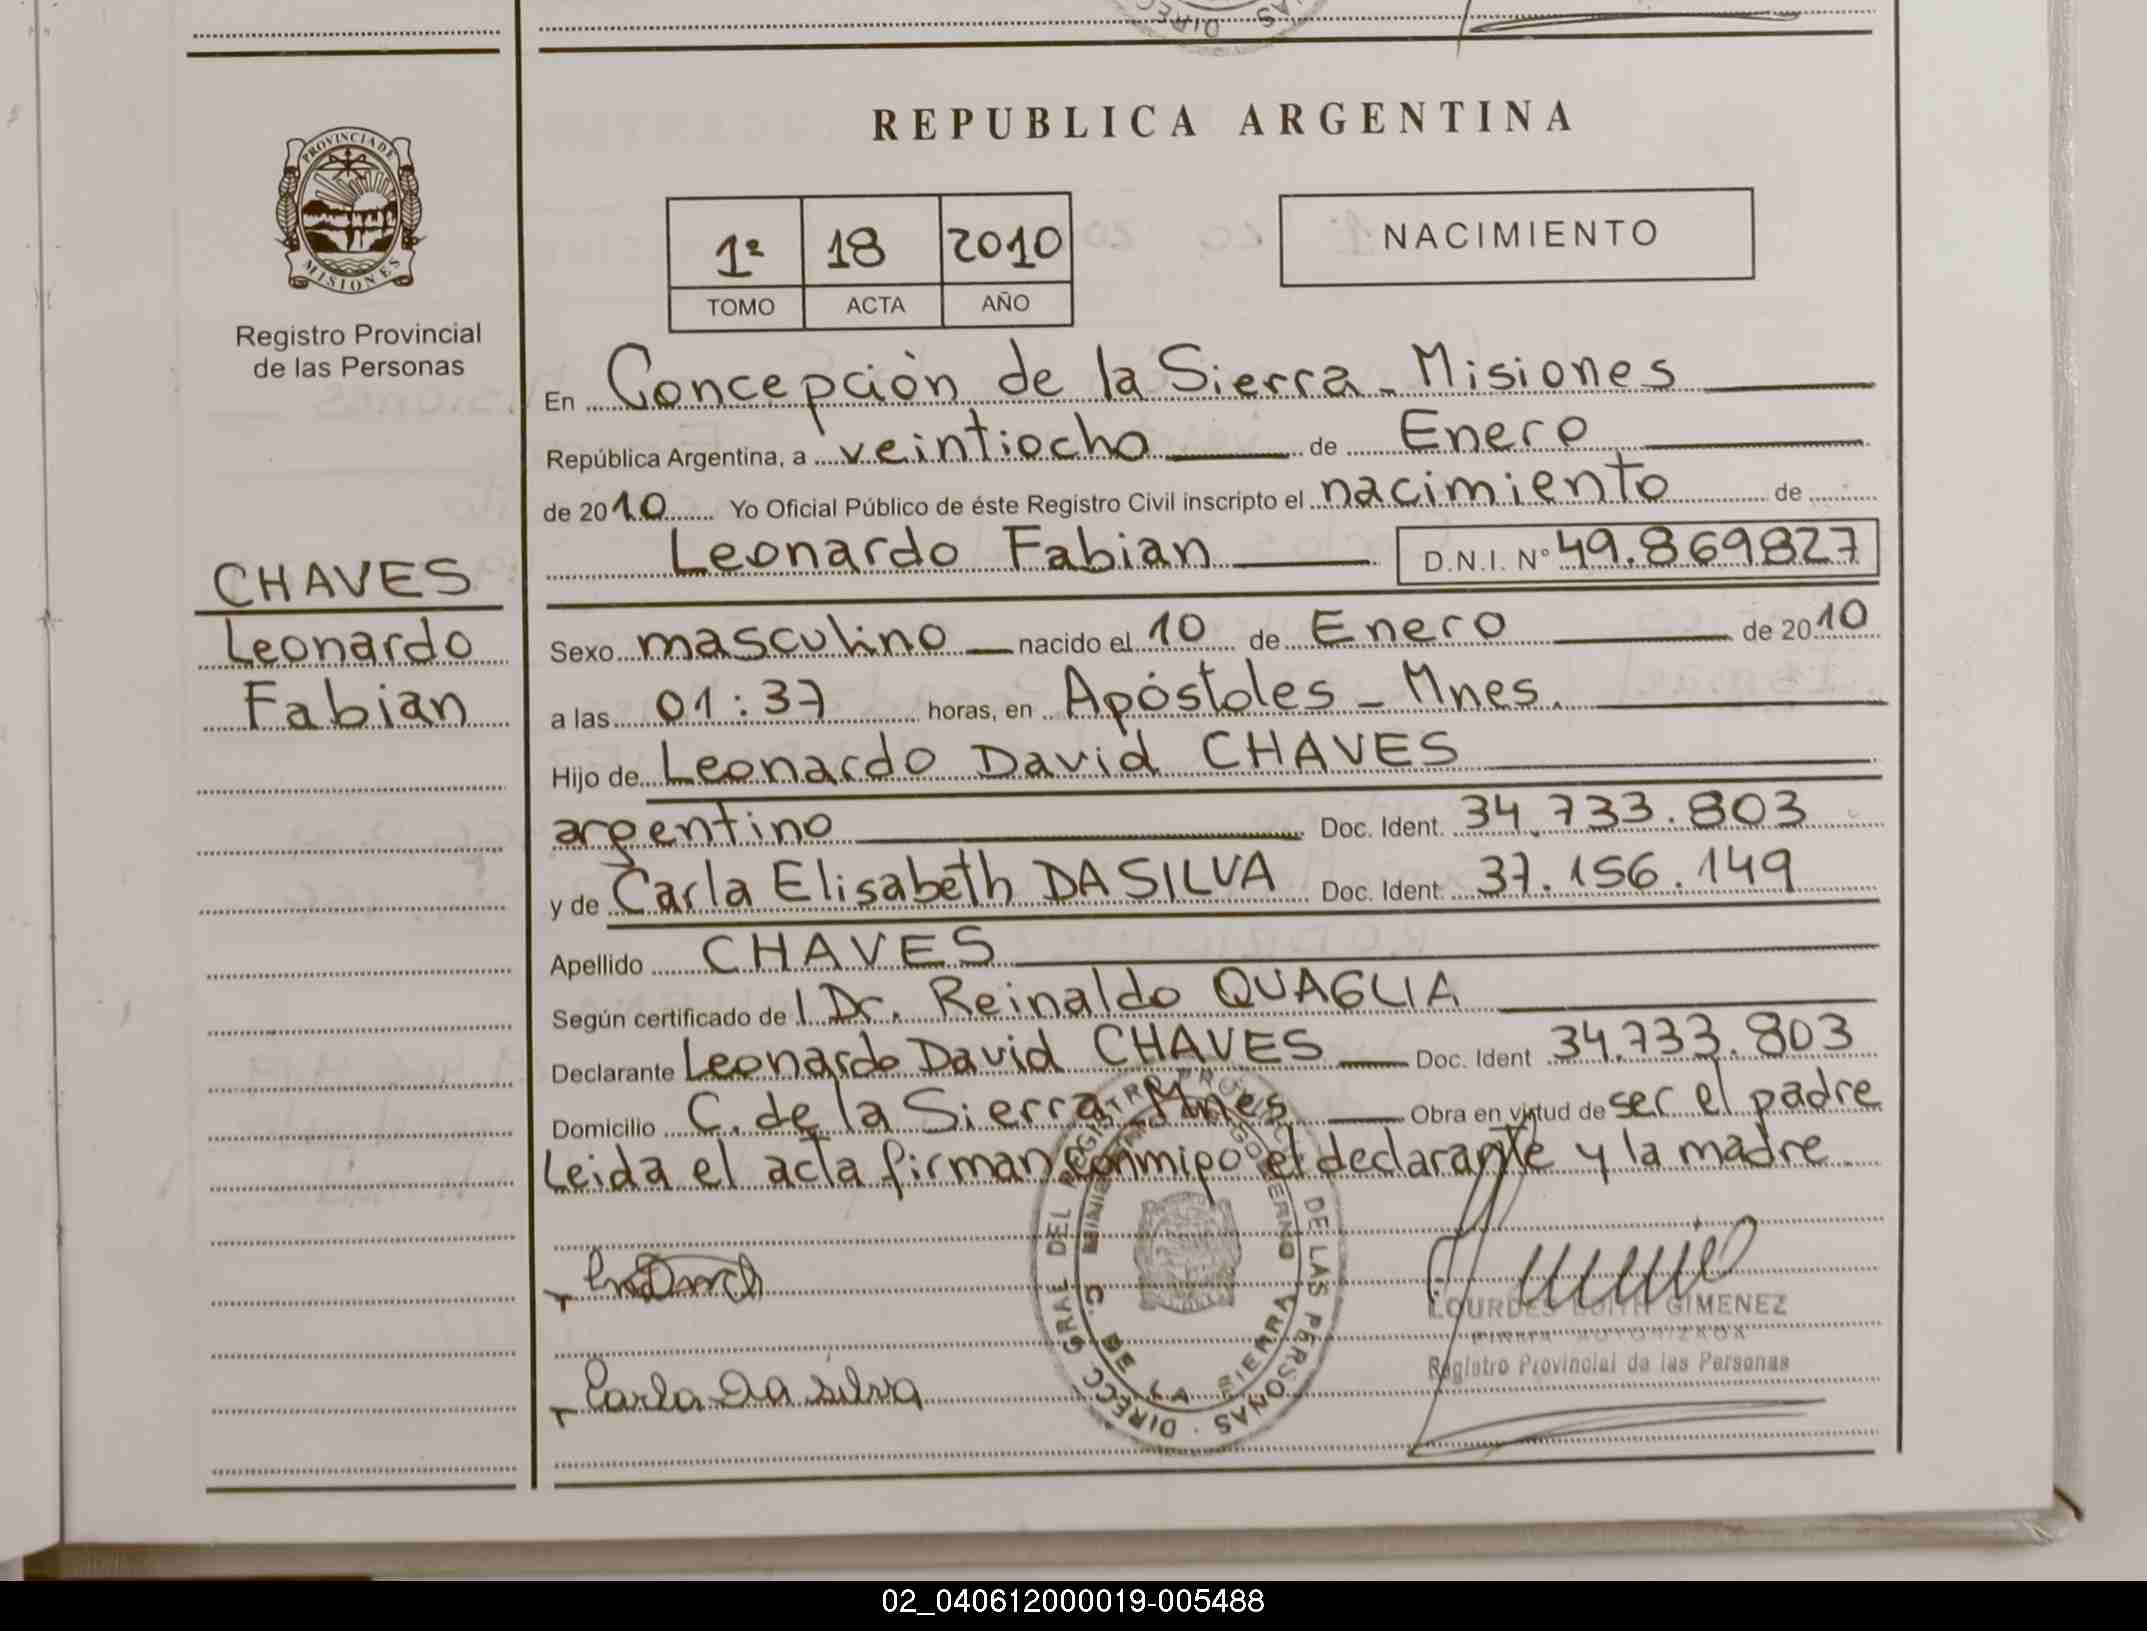 REPUBLICA ARGENTINA
PROVINCIA DE
MISIONES
Registro Provincial
de las Personas
1ª 18 2010
TOMO ACTA AÑO
NACIMIENTO
CHAVES
Leonardo
Fabian
En Concepción de la Sierra - Misiones
República Argentina, a veintiocho de Enero
de 2010 Yo Oficial Público de éste Registro Civil inscripto el nacimiento de
Leonardo Fabian D.N.I. Nº 49.869827
Sexo masculino nacido el 10 de Enero de 2010
a las 01:37 horas, en Apóstoles - Mnes.
Hijo de Leonardo David CHAVES
argentino Doc. Ident. 34.733.803
y de Carla Elisabeth DA SILVA Doc. Ident. 37.156.149
Apellido CHAVES
Según certificado de l Dr. Reinaldo QUAGLIA
Declarante Leonardo David CHAVES Doc. Ident 34.733.803
Domicilio C. de la Sierra - Mnes Obra en virtud de ser el padre
Leida el acta firman conmigo el declarante y la madre
Carla Da silva
DIRECC GRAL DEL REGISTRO DE LAS PERSONAS
C. DE LA SIERRA
LOURDES EDITH GIMENEZ
Registro Provincial de las Personas
02_040612000019-005488